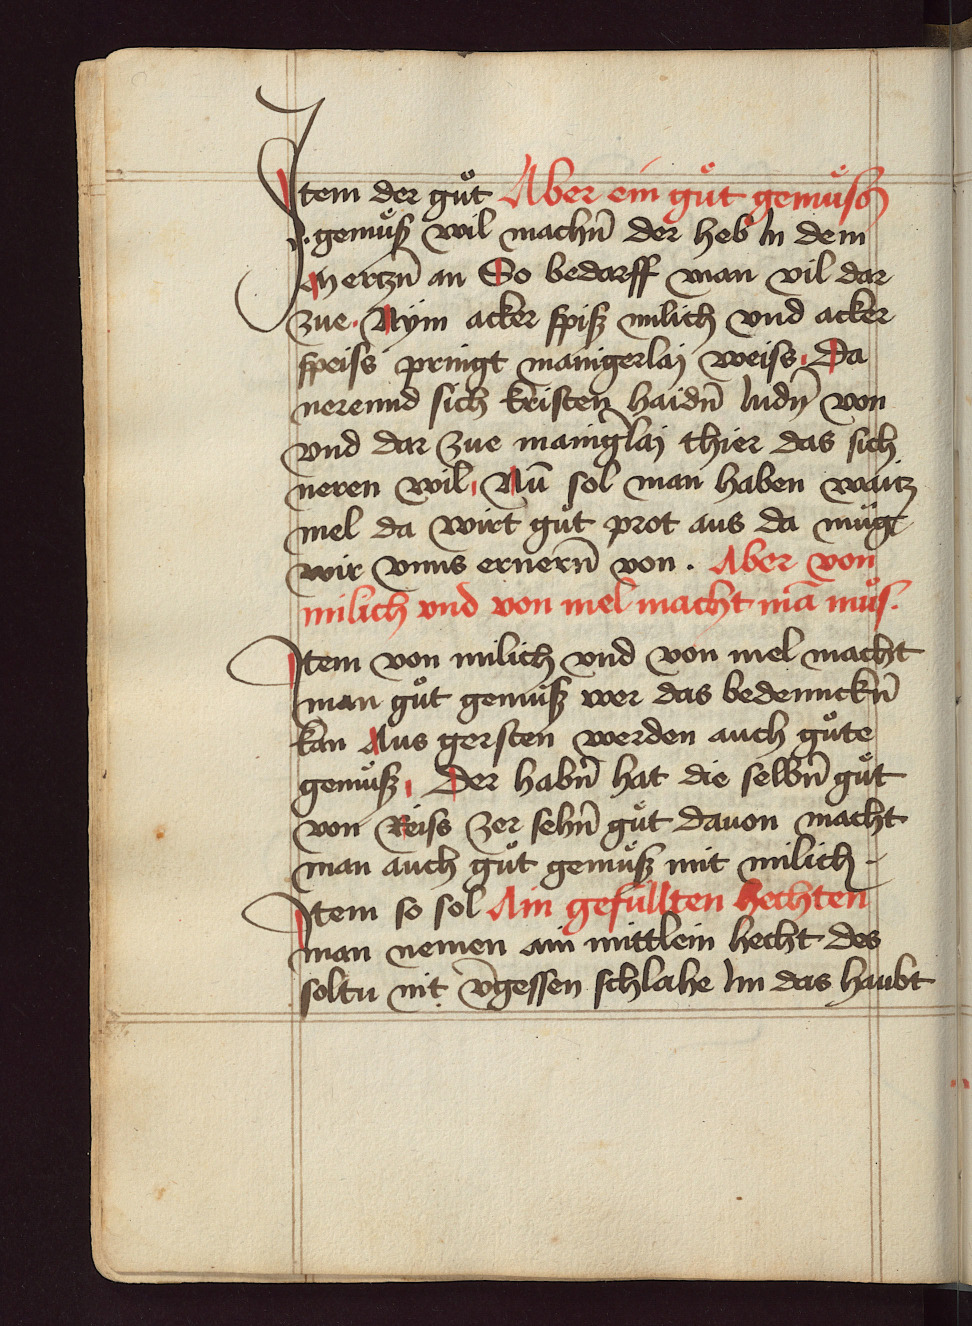 Item der gůt Aber ein gůt gemůsß
gemůß wil machn̄ der heb In dem
Mertzn̄ an So bedarff man vil dar
zue. Nÿm acker spiß milich vnd acker
speiss pringt manigerlaj weiss. Da
nerennd sich kristen haidn̄ Judn̄ von
vnd dar zue maniglaj thier das sich
neren wil. Nū sol man haben waitz
mel da wirt gůt prot aus da mügt
wir vnns ernern̄ von. Aber von
milich vnd von mel macht mā můs.
Item von milich vnd von mel macht
man gůt gemůß wer das bedennckn̄
kan Aus gersten werden auch gůte
gemůß. Der habn̄ hat die selbn̄ gůt
von Reiss zer sehn̄ gůt dauon macht
man auch gůt gemůß mit milich.
Item so sol Ain gefüllten hechten
man nemen ain mittlein hecht des
soltu nit v̄gessen schlahe Im das haubt